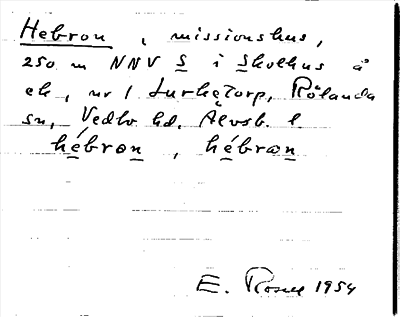 Hebron, missionshus,
250 m NNV S i Skolhus å
ek, nr 1 Lurketorp, Rölanda
sn, Vedbo hd, Älvsb. l
hébron, hébrɷn
E. Rosell 1954